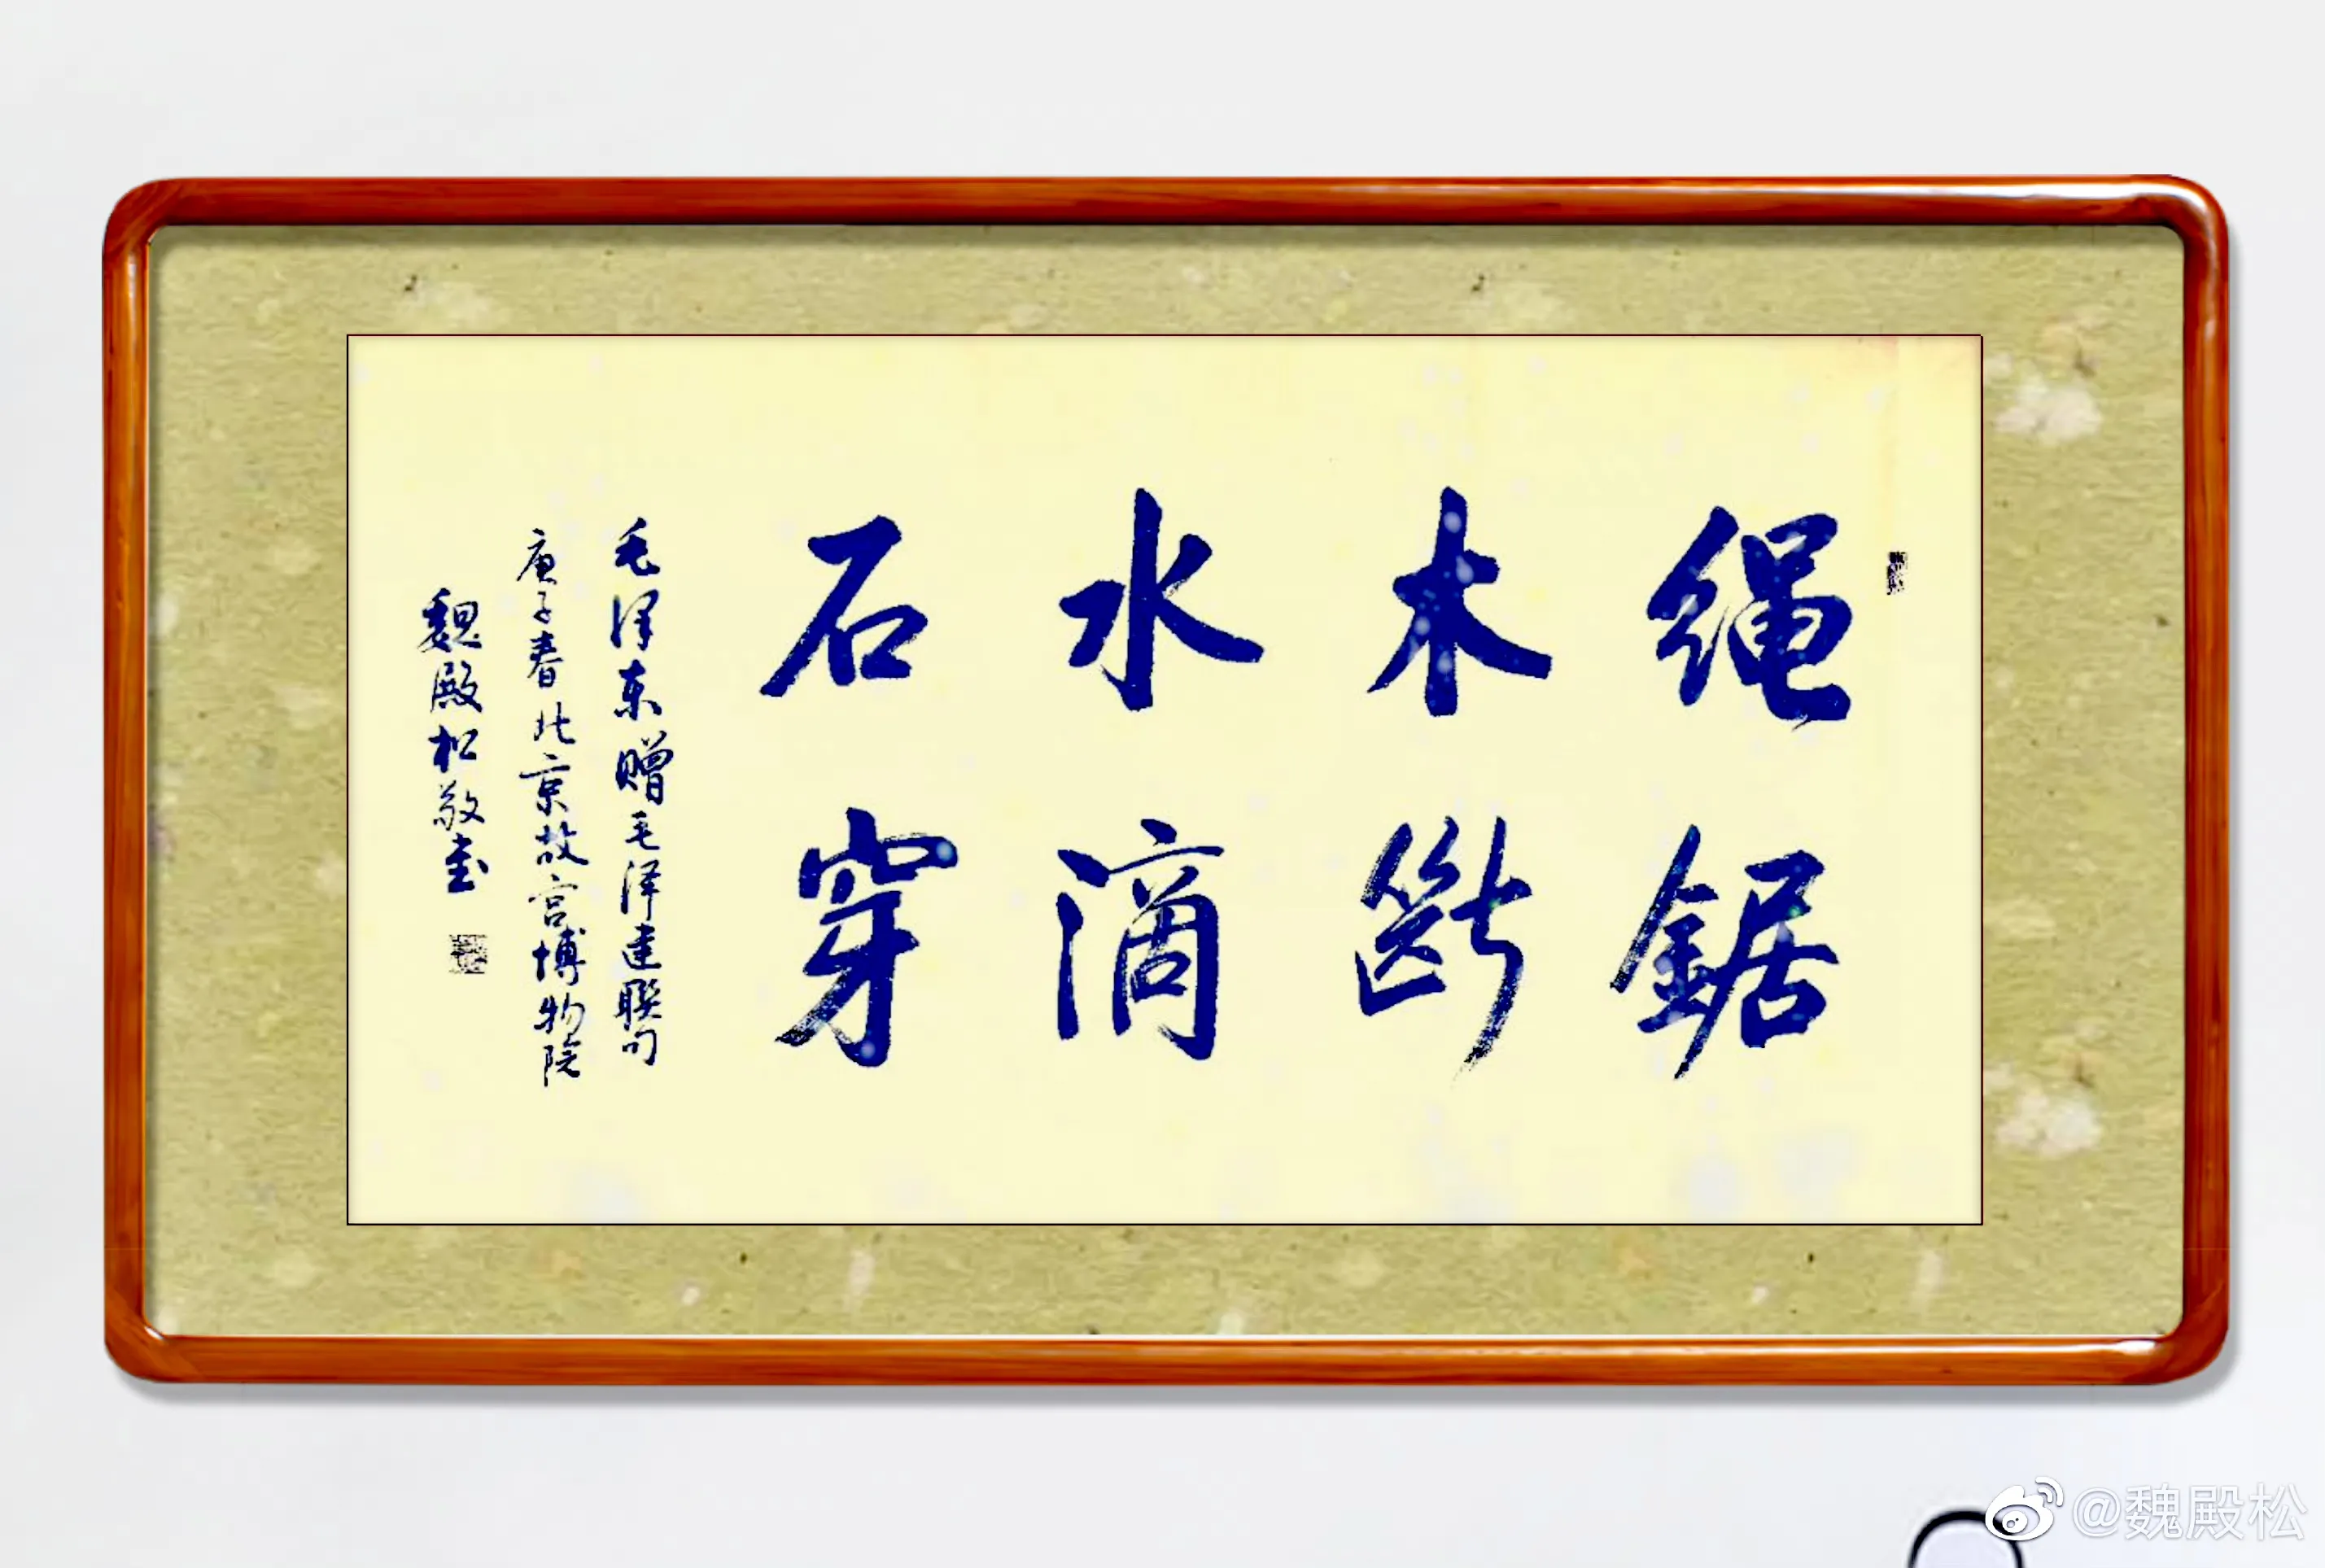 绳鋸
木斷
水滴
石穿
毛泽东赠毛泽建联句
庚子春北京故宫博物院
魏殿松敬书
@魏殿松